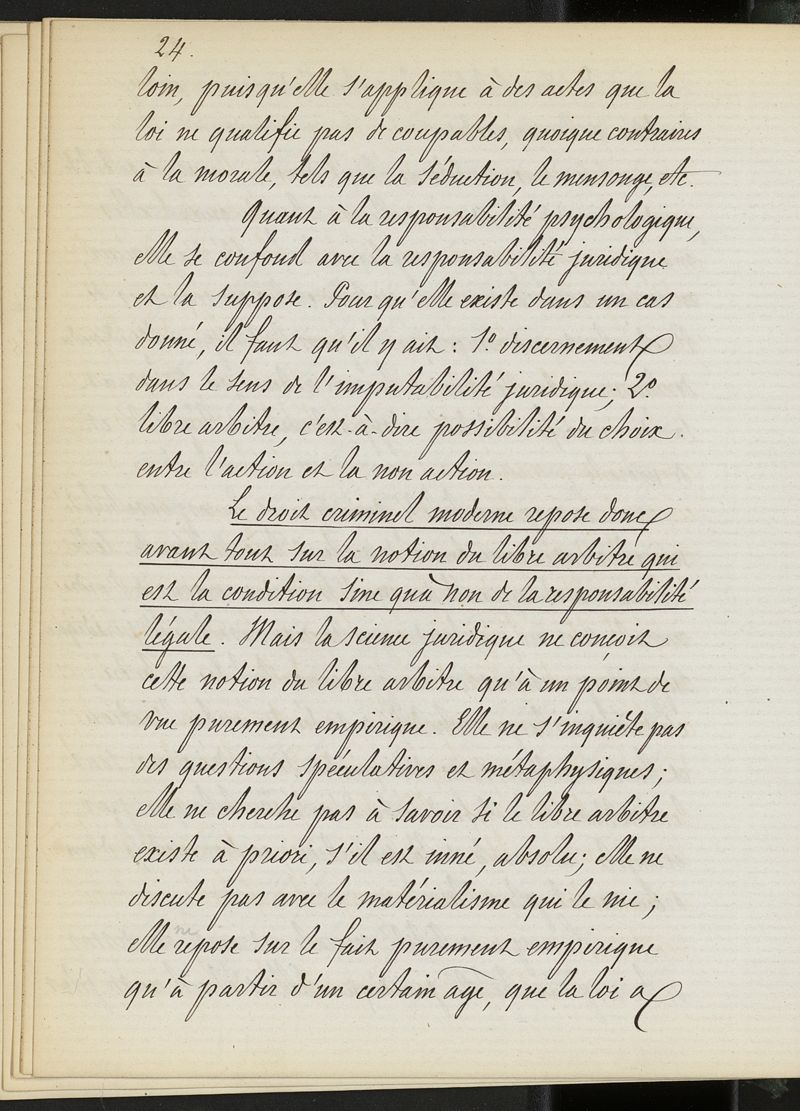 24.
loin, puisqu'elle s'applique à des actes que la
loi ne qualifie pas de coupables, quoique contraires
à la morale, tels que la séduction, le mensonge, etc.
Quant à la responsabilité psychologique,
elle se confond avec la responsabilité juridique
et la suppose. Pour qu'elle existe dans un cas
donné, il faut qu'il y ait : 1º discernement
dans le sens de l'imputabilité juridique; 2º.
libre arbitre, c'est-à-dire possibilité du choix.
entre l'action et la non action.
Le droit criminel moderne repose donc
avant tout sur la notion du libre arbitre qui
est la condition sine quà non de la responsabilité
légale. Mais la science juridique ne conçoit
cette notion du libre arbitre qu'à un point de
vue purement empirique. Elle ne s'inquiète pas
des questions spéculatives et métaphysiques;
elle ne cherche pas à savoir si le libre arbitre
existe à priori, s'il est inné, absolu; elle ne
discute pas avec le matérialisme qui le nie;
elle ne repose sur le fait purement empirique
qu'à partir d'un certain age, que la loi a